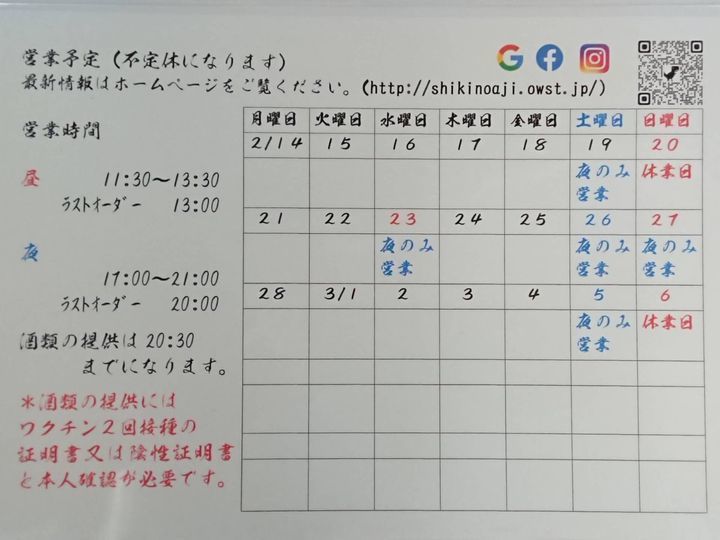 営業予定(不定休になります)
最新情報はホームページをご覧ください。(http://shikinoaji.owst.jp/)
営業時間
昼 11:30～13:30
ラストオーダー 13:00
夜
17:00～21:00
ラストオーダー 20:00
酒類の提供は20:30
までになります。
*酒類の提供には
ワクチン2回接種の
証明書又は陰性証明書
と本人確認が必要です。
月曜日 火曜日 水曜日 木曜日 金曜日 土曜日 日曜日
2/14 15 16 17 18 19 20
夜のみ 休業日
営業
21 22 23 24 25 26 27
夜のみ 夜のみ 夜のみ
営業 営業 営業
28 3/1 2 3 4 5 6
夜のみ 休業日
営業